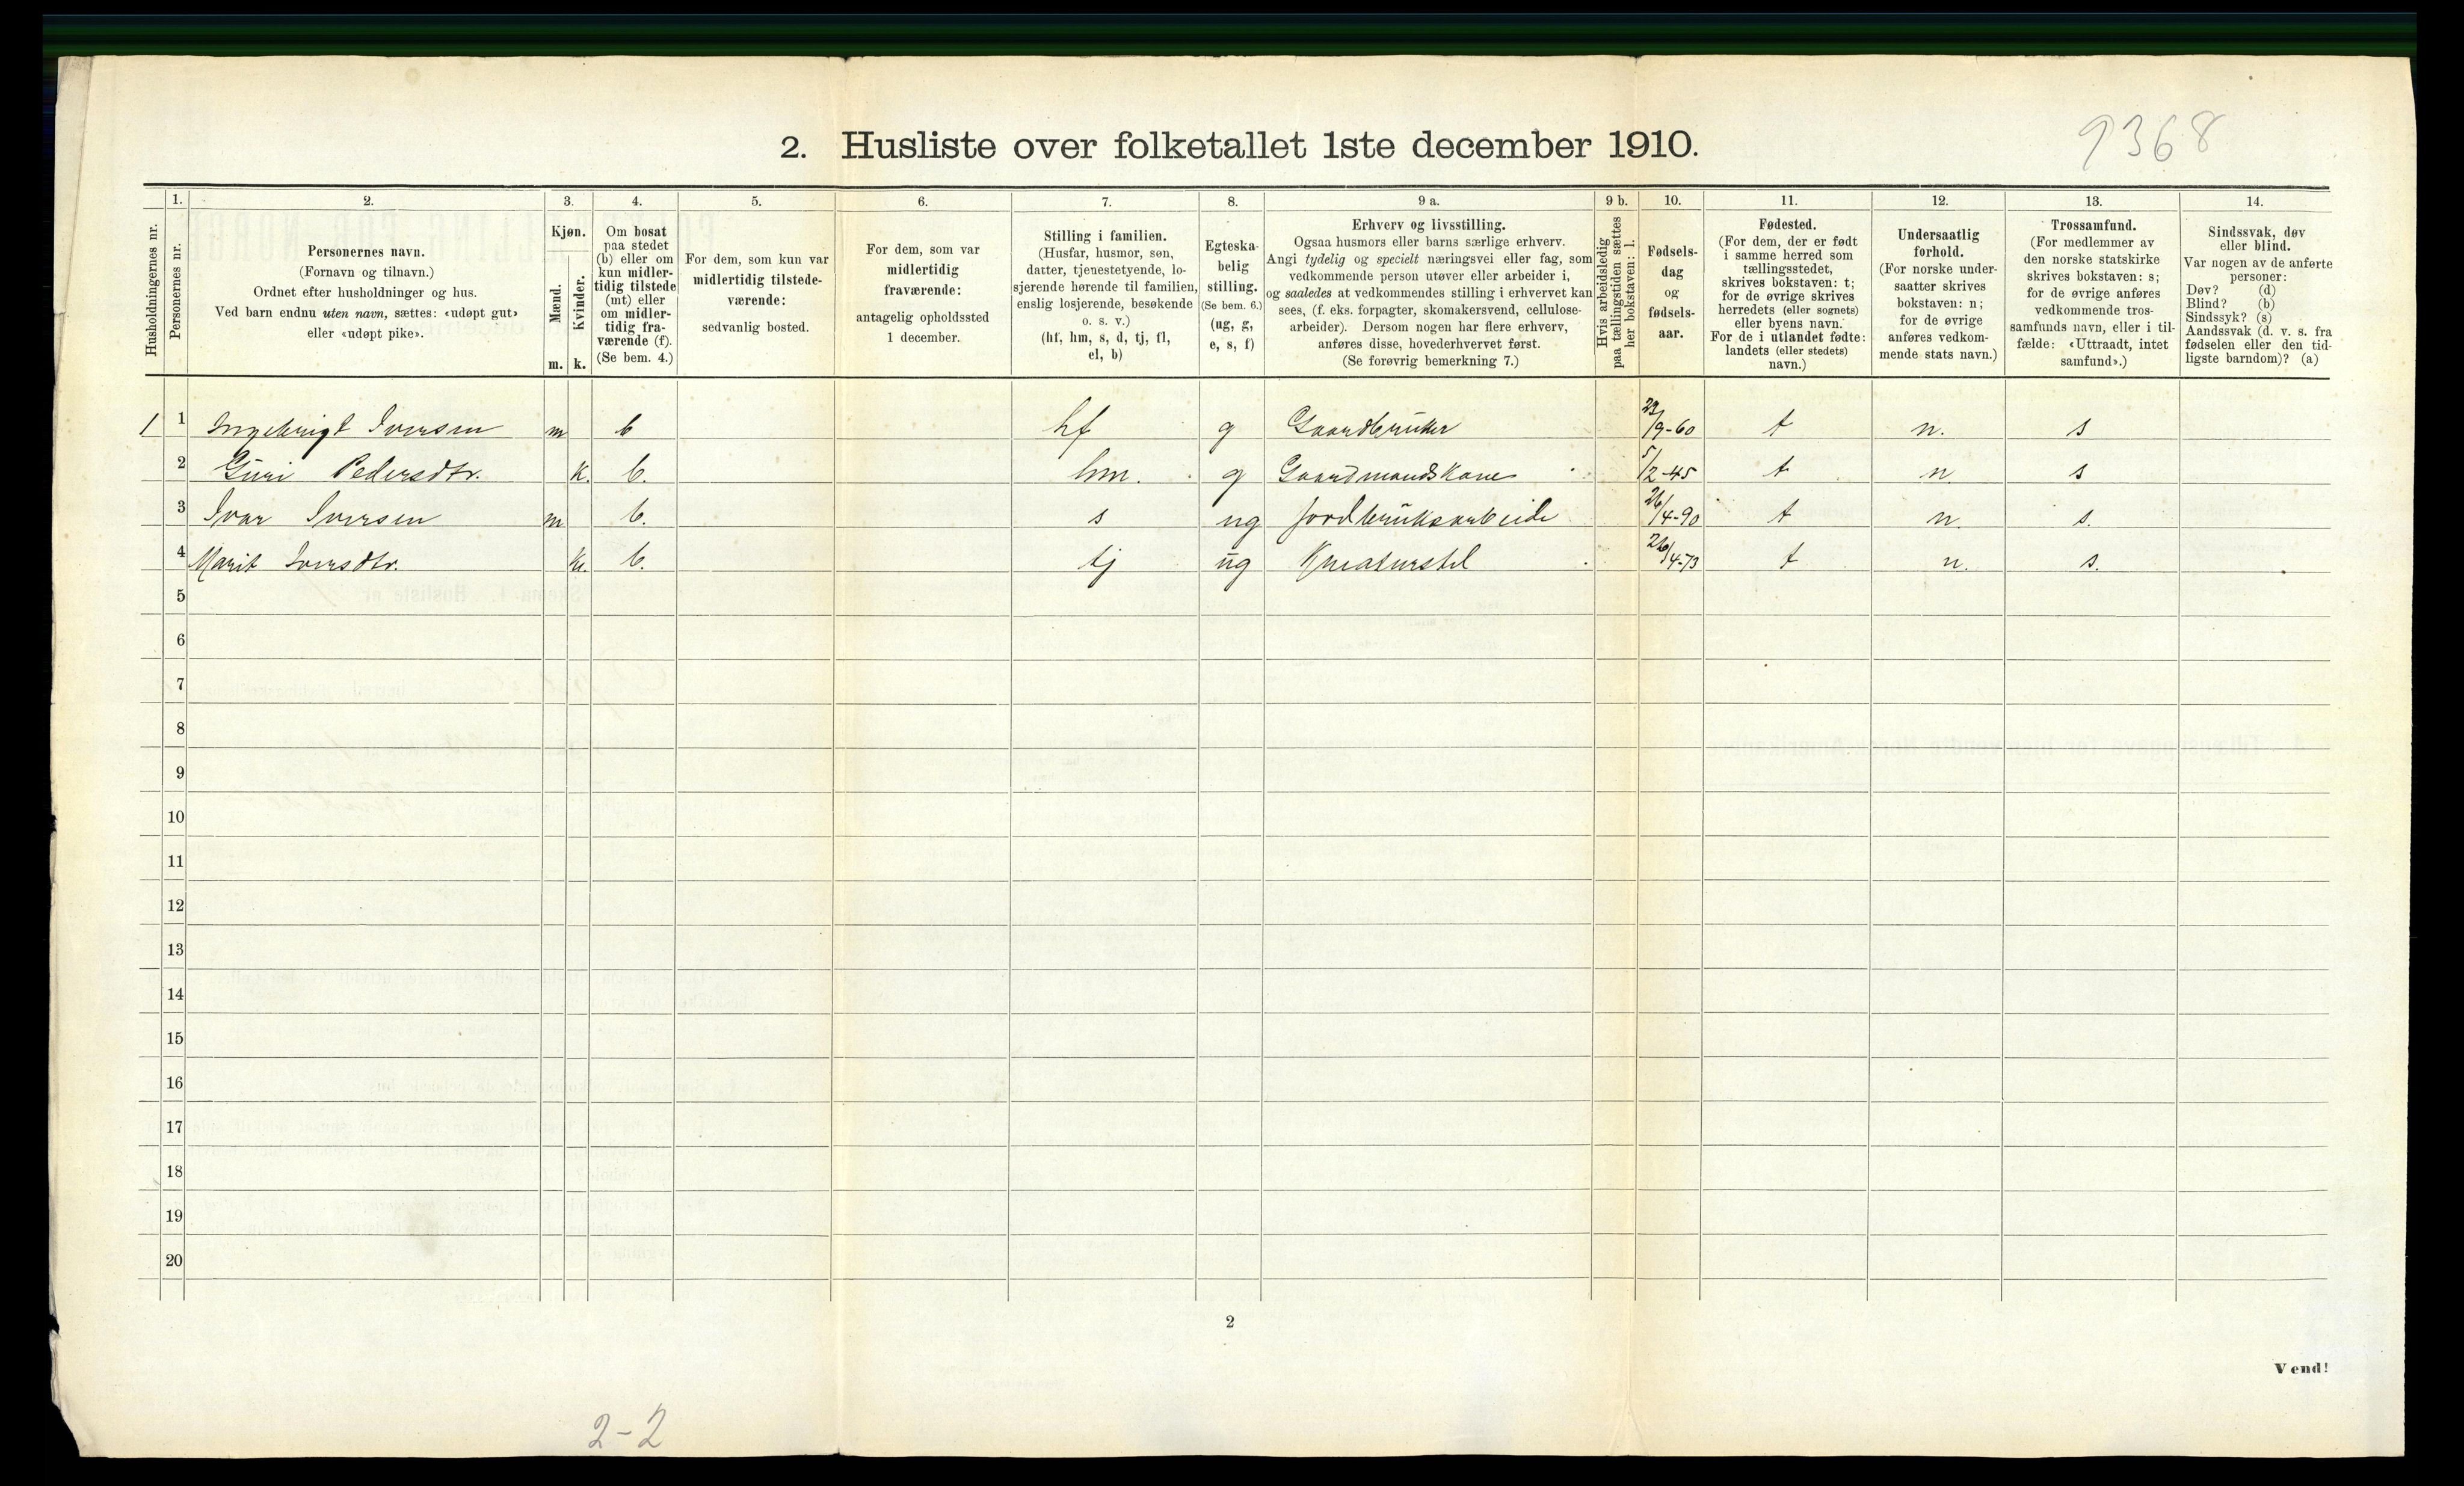 9368
2. Husliste over folketallet 1ste december 1910.
Husholdningernes nr.
1.
Personernes nr.
2.
Personernes navn.
(Fornavn og tilnavn.)
Ordnet efter husholdninger og hus.
Ved barn endnu uten navn, sættes: «udøpt gut»
eller «udøpt pike».
3.
Kjøn.
Mænd.
Kvinder.
m. k.
4.
Om bosat
paa stedet
(b) eller om
kun midler-
tidig tilstede
(mt) eller
om midler-
tidig fra-
værende (f).
(Se bem. 4.)
5.
For dem, som kun var
midlertidig tilstede-
værende:
sedvanlig bosted.
6.
For dem, som var
midlertidig
fraværende:
antagelig opholdssted
1 december.
7.
Stilling i familien.
(Husfar, husmor, søn,
datter, tjenestetyende, lo-
sjerende hørende til familien,
enslig losjerende, besøkende
o. s. v.)
(hf, hm, s, d, tj, fl,
el, b)
8.
Egteska-
belig
stilling.
(Se bem. 6.)
(ug, g,
e, s, f)
9 a.
Erhverv og livsstilling.
Ogsaa husmors eller barns særlige erhverv.
Angi tydelig og specielt næringsvei eller fag, som
vedkommende person utøver eller arbeider i,
og saaledes at vedkommendes stilling i erhvervet kan
sees, (f. eks. forpagter, skomakersvend, cellulose-
arbeider). Dersom nogen har flere erhverv,
anføres disse, hovederhvervet først.
(Se forøvrig bemerkning 7.)
9 b.
Hvis arbeidsledig
paa tællingstiden sættes
her bokstaven: l.
10.
Fødsels-
dag
og
fødsels-
aar.
11.
Fødested.
(For dem, der er født
i samme herred som
tællingsstedet,
skrives bokstaven: t;
for de øvrige skrives
herredets (eller sognets)
eller byens navn.
For de i utlandet fødte:
landets (eller stedets)
navn.)
12.
Undersaatlig
forhold.
(For norske under-
saatter skrives
bokstaven: n;
for de øvrige
anføres vedkom-
mende stats navn.)
13.
Trossamfund.
(For medlemmer av
den norske statskirke
skrives bokstaven: s;
for de øvrige anføres
vedkommende tros-
samfunds navn, eller i til-
fælde: «Uttraadt, intet
samfund».)
14.
Sindssvak, døv
eller blind.
Var nogen av de anførte
personer:
Døv? (d)
Blind? (b)
Sindssyk? (s)
Aandssvak (d. v. s. fra
fødselen eller den tid-
ligste barndom)? (a)
1 1 Ingebrigt Iversen m b hf g Gaardbruker 23/9-60 t n. s
2 Guri Pedersdtr. k. b. hm. g Gaardmandskone 5/2-45 t n. s
3 Ivar Iversen m b. s ug Jordbruksarbeide 26/4-90 t n. s.
4 Marit Iversdtr. k. b. tj ug Kreaturstel 26/4-73 t n. s.
5
6
7
8
9
10
11
12
13
14
15
16
17
18
19
20
2
Vend!
2-2